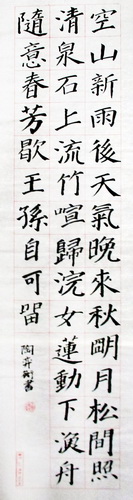 空山新雨後天氣晚來秋朙月松間照
清泉石上流竹喧歸浣女蓮動下漁舟
隨意春芳歇王孫自可留
陶書